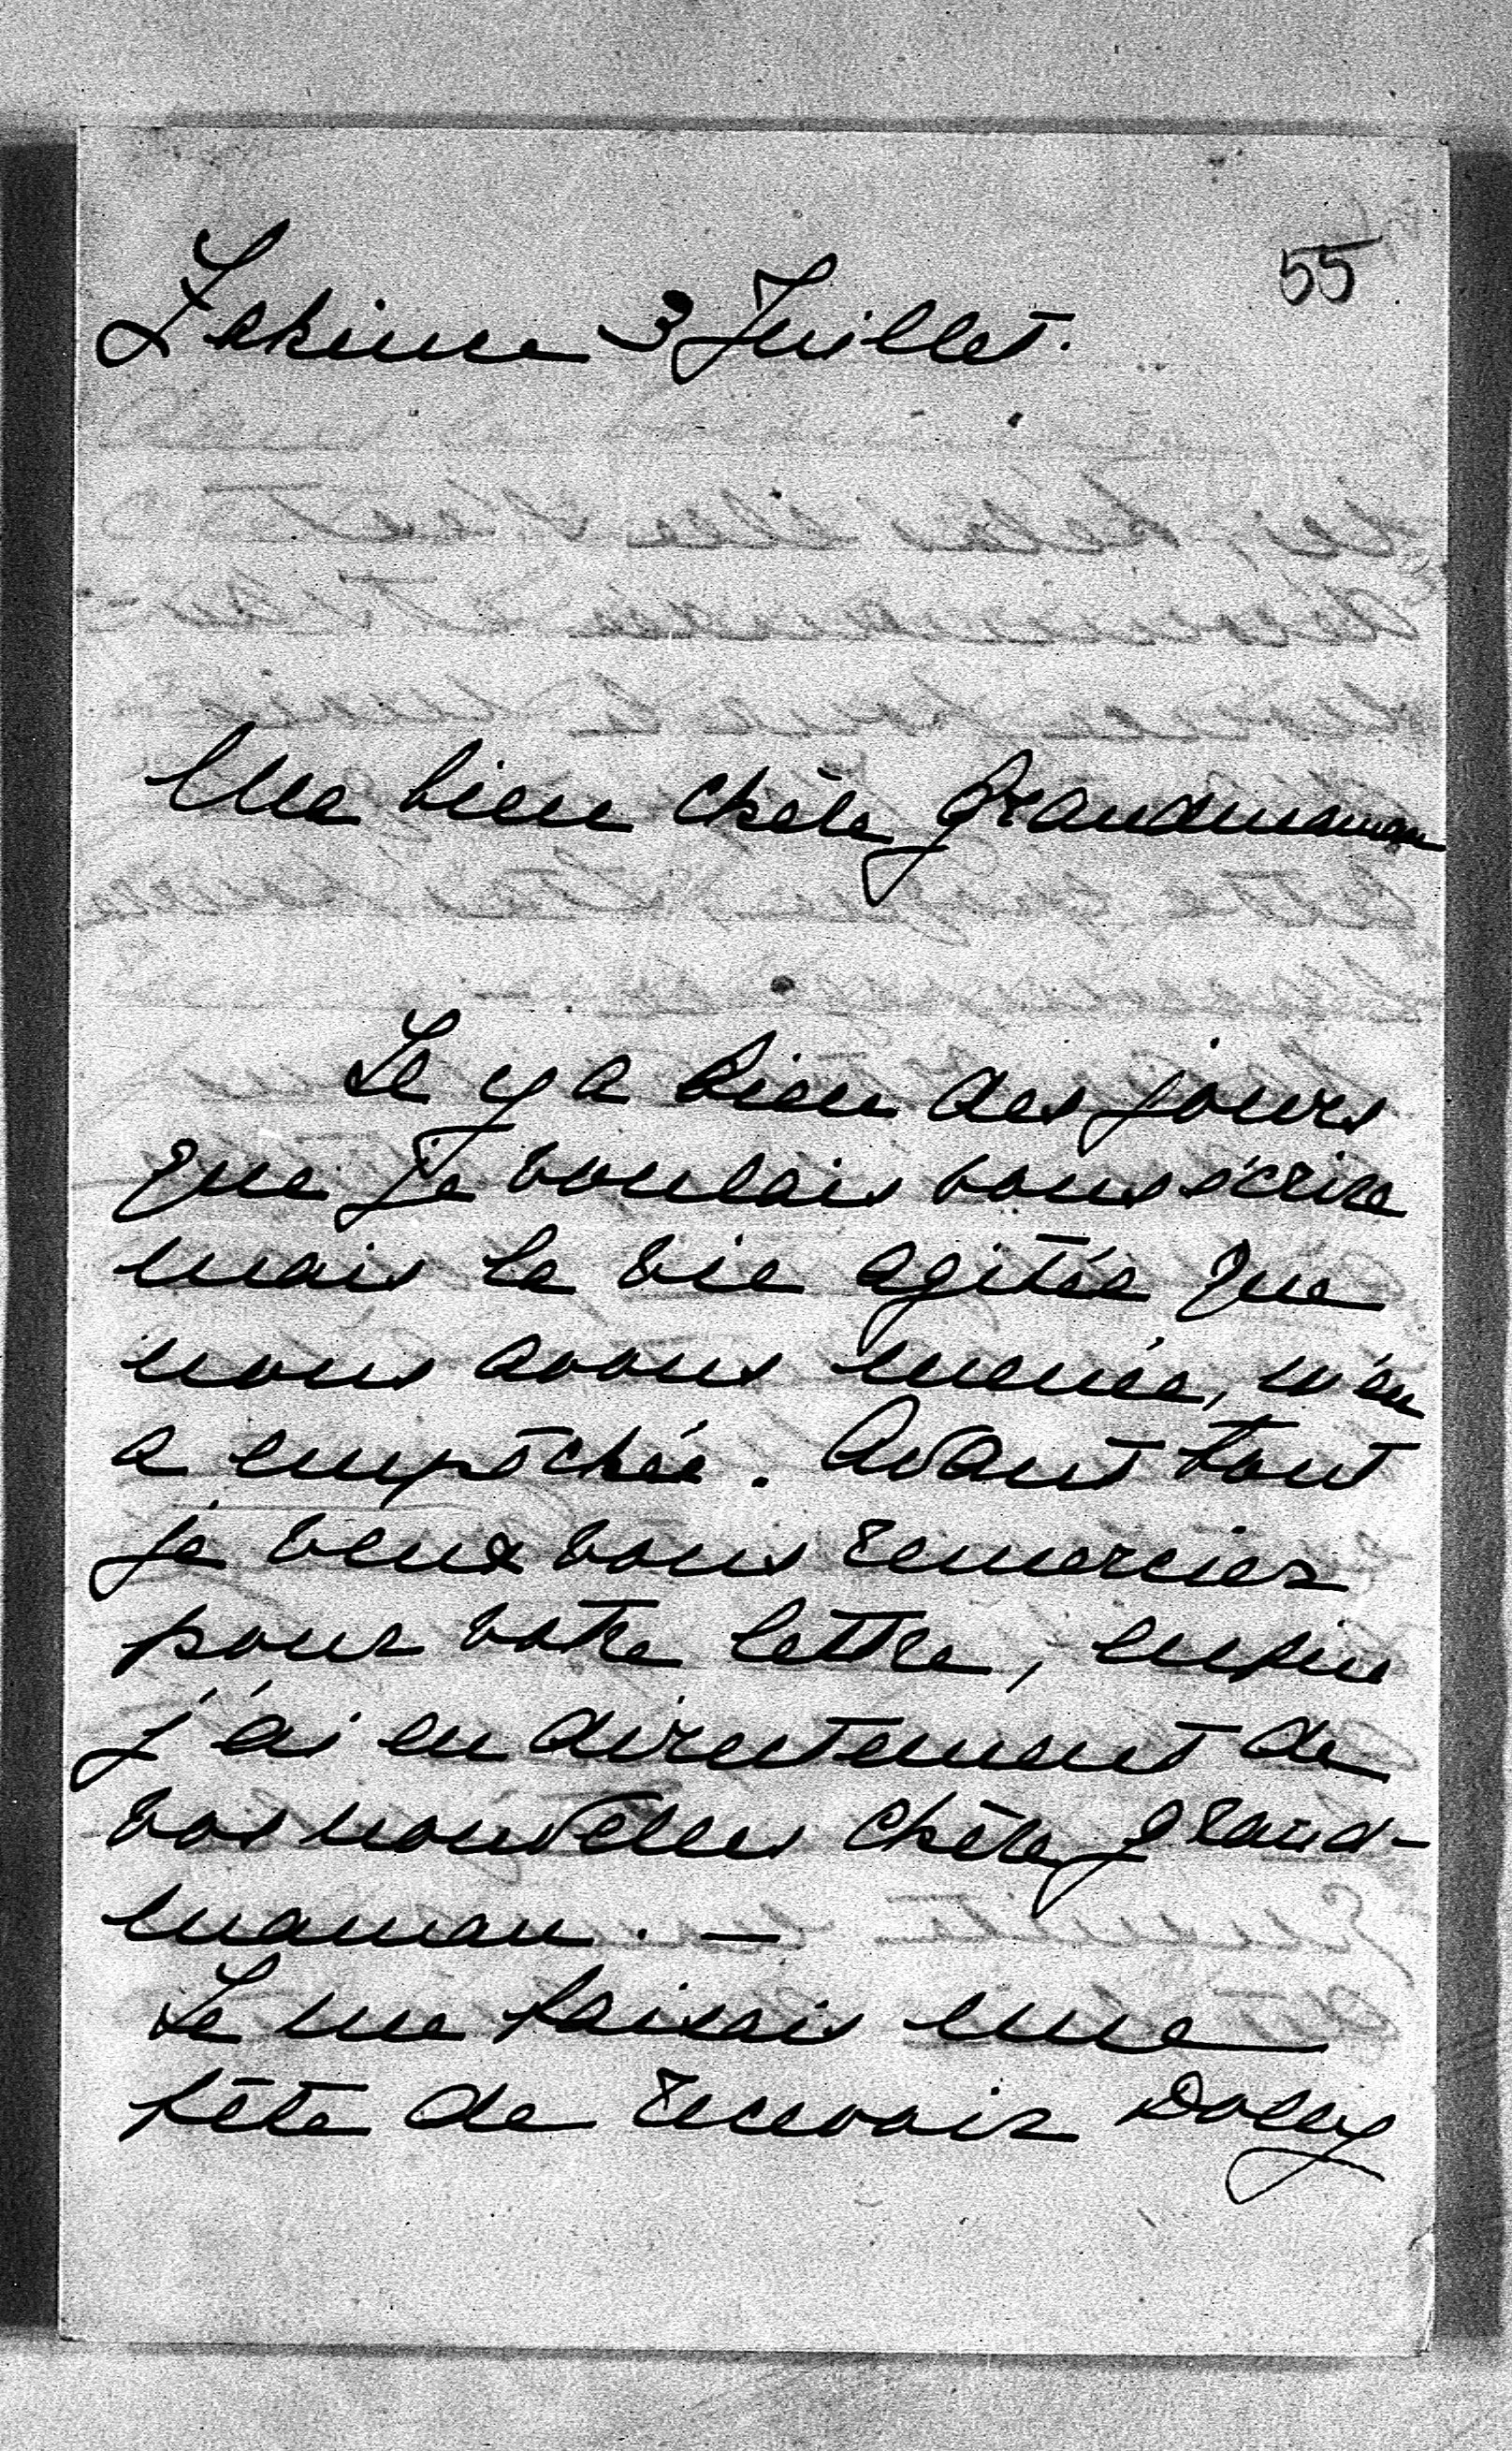 55
3 Juillet.
Ma bien chère Grandmaman
Il y a bien des jours
que je voulais vous écrire
mais la vie agitée que
nous avons menée, m'en
a empêchée. Avant tout
je veux vous remercier
pour votre lettre, enfin
j'ai eu directement de
vos nouvelles chère grand-
maman. —
Je me faisais une
fête de recevoir Dolly